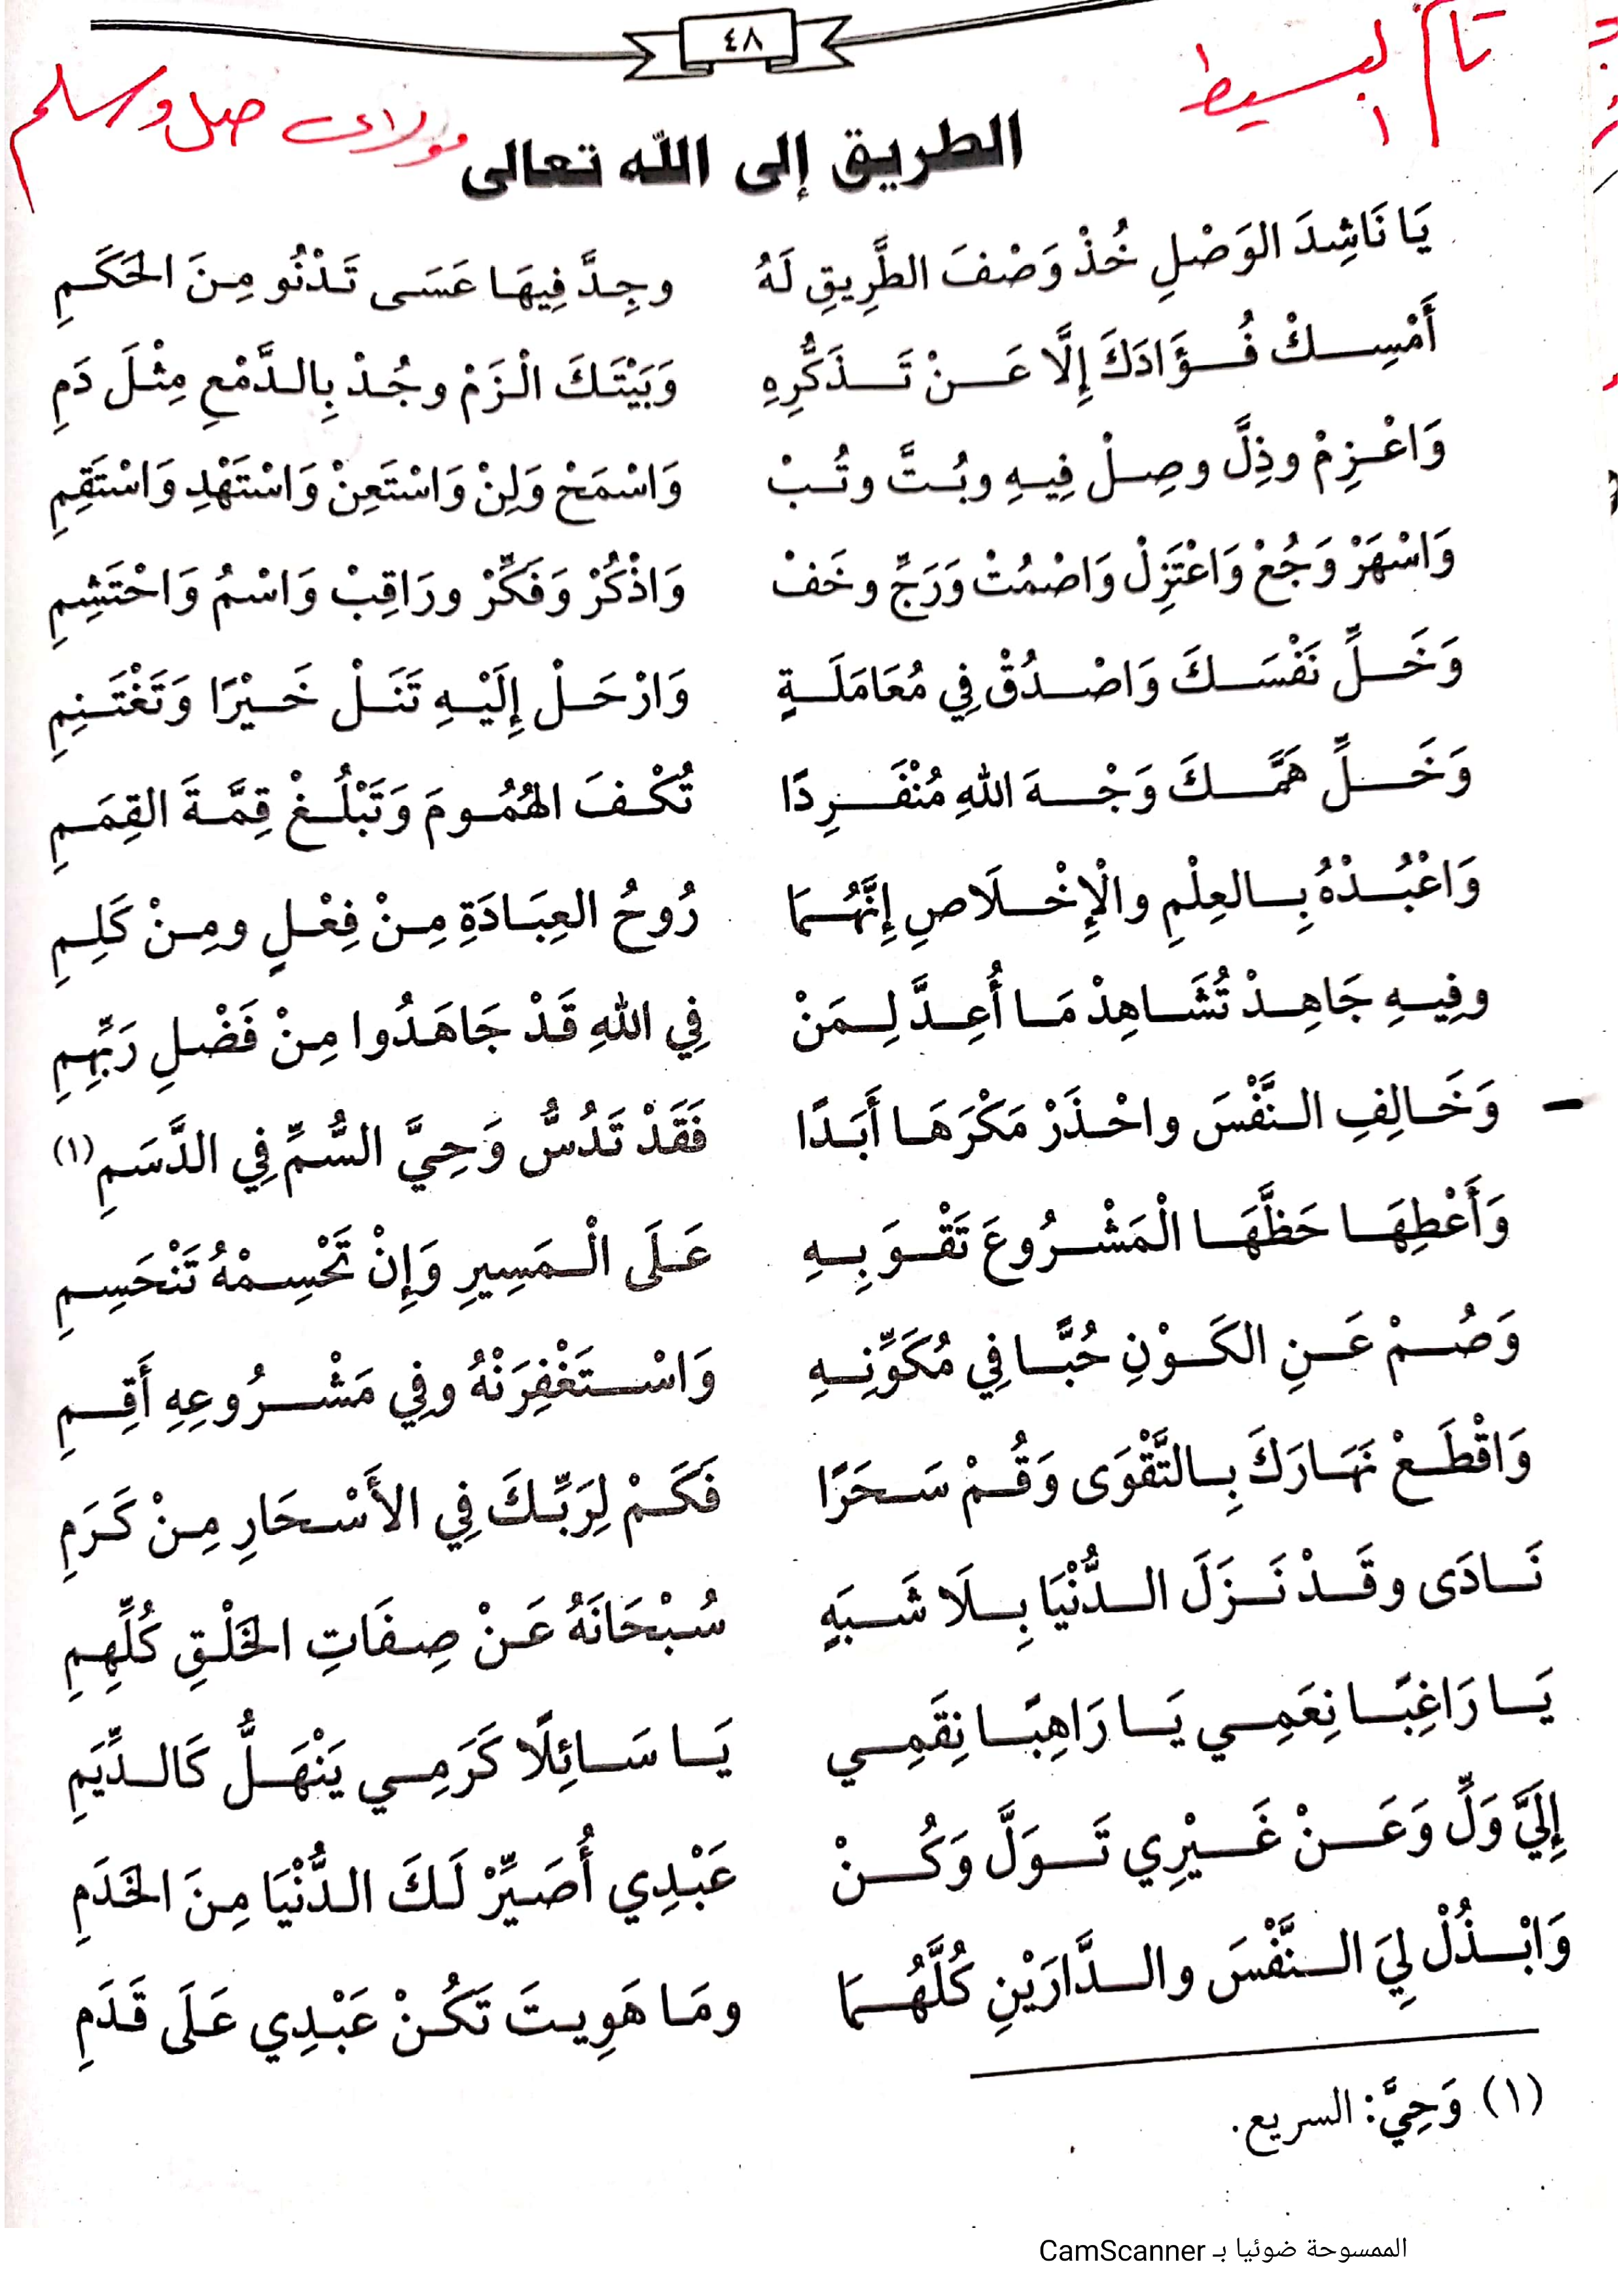 ٤٨
تام البسيط
مولاي صل وسلم
الطريق إلى الله تعالى
يَا نَاشِدَ الوَصْلِ خُذْ وَصْفَ الطَّرِيقِ لَهُ وجِدَّ فِيهَا عَسَى تَدْنُو مِنَ الحَكَمِ
أَمْسِكْ فُؤَادَكَ إِلَّا عَنْ تَذَكُّرِهِ وَبَيْتَكَ الْزَمْ وجُدْ بِالدَّمْعِ مِثْلَ دَمِ
وَاعْزِمْ وذِلَّ وصِلْ فِيهِ وبُتَّ وتُبْ وَاسْمَحْ وَلِنْ وَاسْتَعِنْ وَاسْتَهْدِ وَاسْتَقِمِ
وَاسْهَرْ وَجُعْ وَاعْتَزِلْ وَاصْمُتْ وَرَجِّ وخَفْ وَاذْكُرْ وَفَكِّرْ ورَاقِبْ وَاسْمُ وَاحْتَشِمِ
وَخَلِّ نَفْسَكَ وَاصْدُقْ فِي مُعَامَلَةٍ وَارْحَلْ إِلَيْهِ تَنَلْ خَيْرًا وَتَغْتَنِمِ
وَخَلِّ هَمَّكَ وَجْهَ اللهِ مُنْفَرِدًا تُكْفَ الهُمُومَ وَتَبْلُغْ قِمَّةَ القِمَمِ
وَاعْبُدْهُ بِالعِلْمِ والْإِخْلَاصِ إِنَّهُمَا رُوحُ العِبَادَةِ مِنْ فِعْلٍ ومِنْ كَلِمِ
وفِيهِ جَاهِدْ تُشَاهِدْ مَا أُعِدَّ لِمَنْ فِي اللهِ قَدْ جَاهَدُوا مِنْ فَضْلِ رَبِّهِمِ
وَخَالِفِ النَّفْسَ واحْذَرْ مَكْرَهَا أَبَدًا فَقَدْ تَدُسُّ وَحِيَّ السُّمِّ فِي الدَّسَمِ (١)
وَأَعْطِهَا حَظَّهَا الْمَشْرُوعَ تَقْوَ بِهِ عَلَى الْمَسِيرِ وَإِنْ تَحْسِمْهُ تَنْحَسِمِ
وَصُمْ عَنِ الكَوْنِ حُبًّا فِي مُكَوِّنِهِ وَاسْتَغْفِرَنْهُ وفِي مَشْرُوعِهِ أَقِمِ
وَاقْطَعْ نَهَارَكَ بِالتَّقْوَى وَقُمْ سَحَرًا فَكَمْ لِرَبِّكَ فِي الأَسْحَارِ مِنْ كَرَمِ
نَادَى وقَدْ نَزَلَ الدُّنْيَا بِلَا شَبَهٍ سُبْحَانَهُ عَنْ صِفَاتِ الخَلْقِ كُلِّهِمِ
يَا رَاغِبًا نِعَمِي يَا رَاهِبًا نِقَمِي يَا سَائِلًا كَرَمِي يَنْهَلُّ كَالدِّيَمِ
إِلَيَّ وَلِّ وَعَنْ غَيْرِي تَوَلَّ وَكُنْ عَبْدِي أُصَيِّرْ لَكَ الدُّنْيَا مِنَ الخَدَمِ
وَابْذُلْ لِيَ النَّفْسَ والدَّارَيْنِ كُلَّهُمَا ومَا هَوِيتَ تَكُنْ عَبْدِي عَلَى قَدَمِ
(١) وَحِيَّ: السريع.
الممسوحة ضوئيا بـ CamScanner